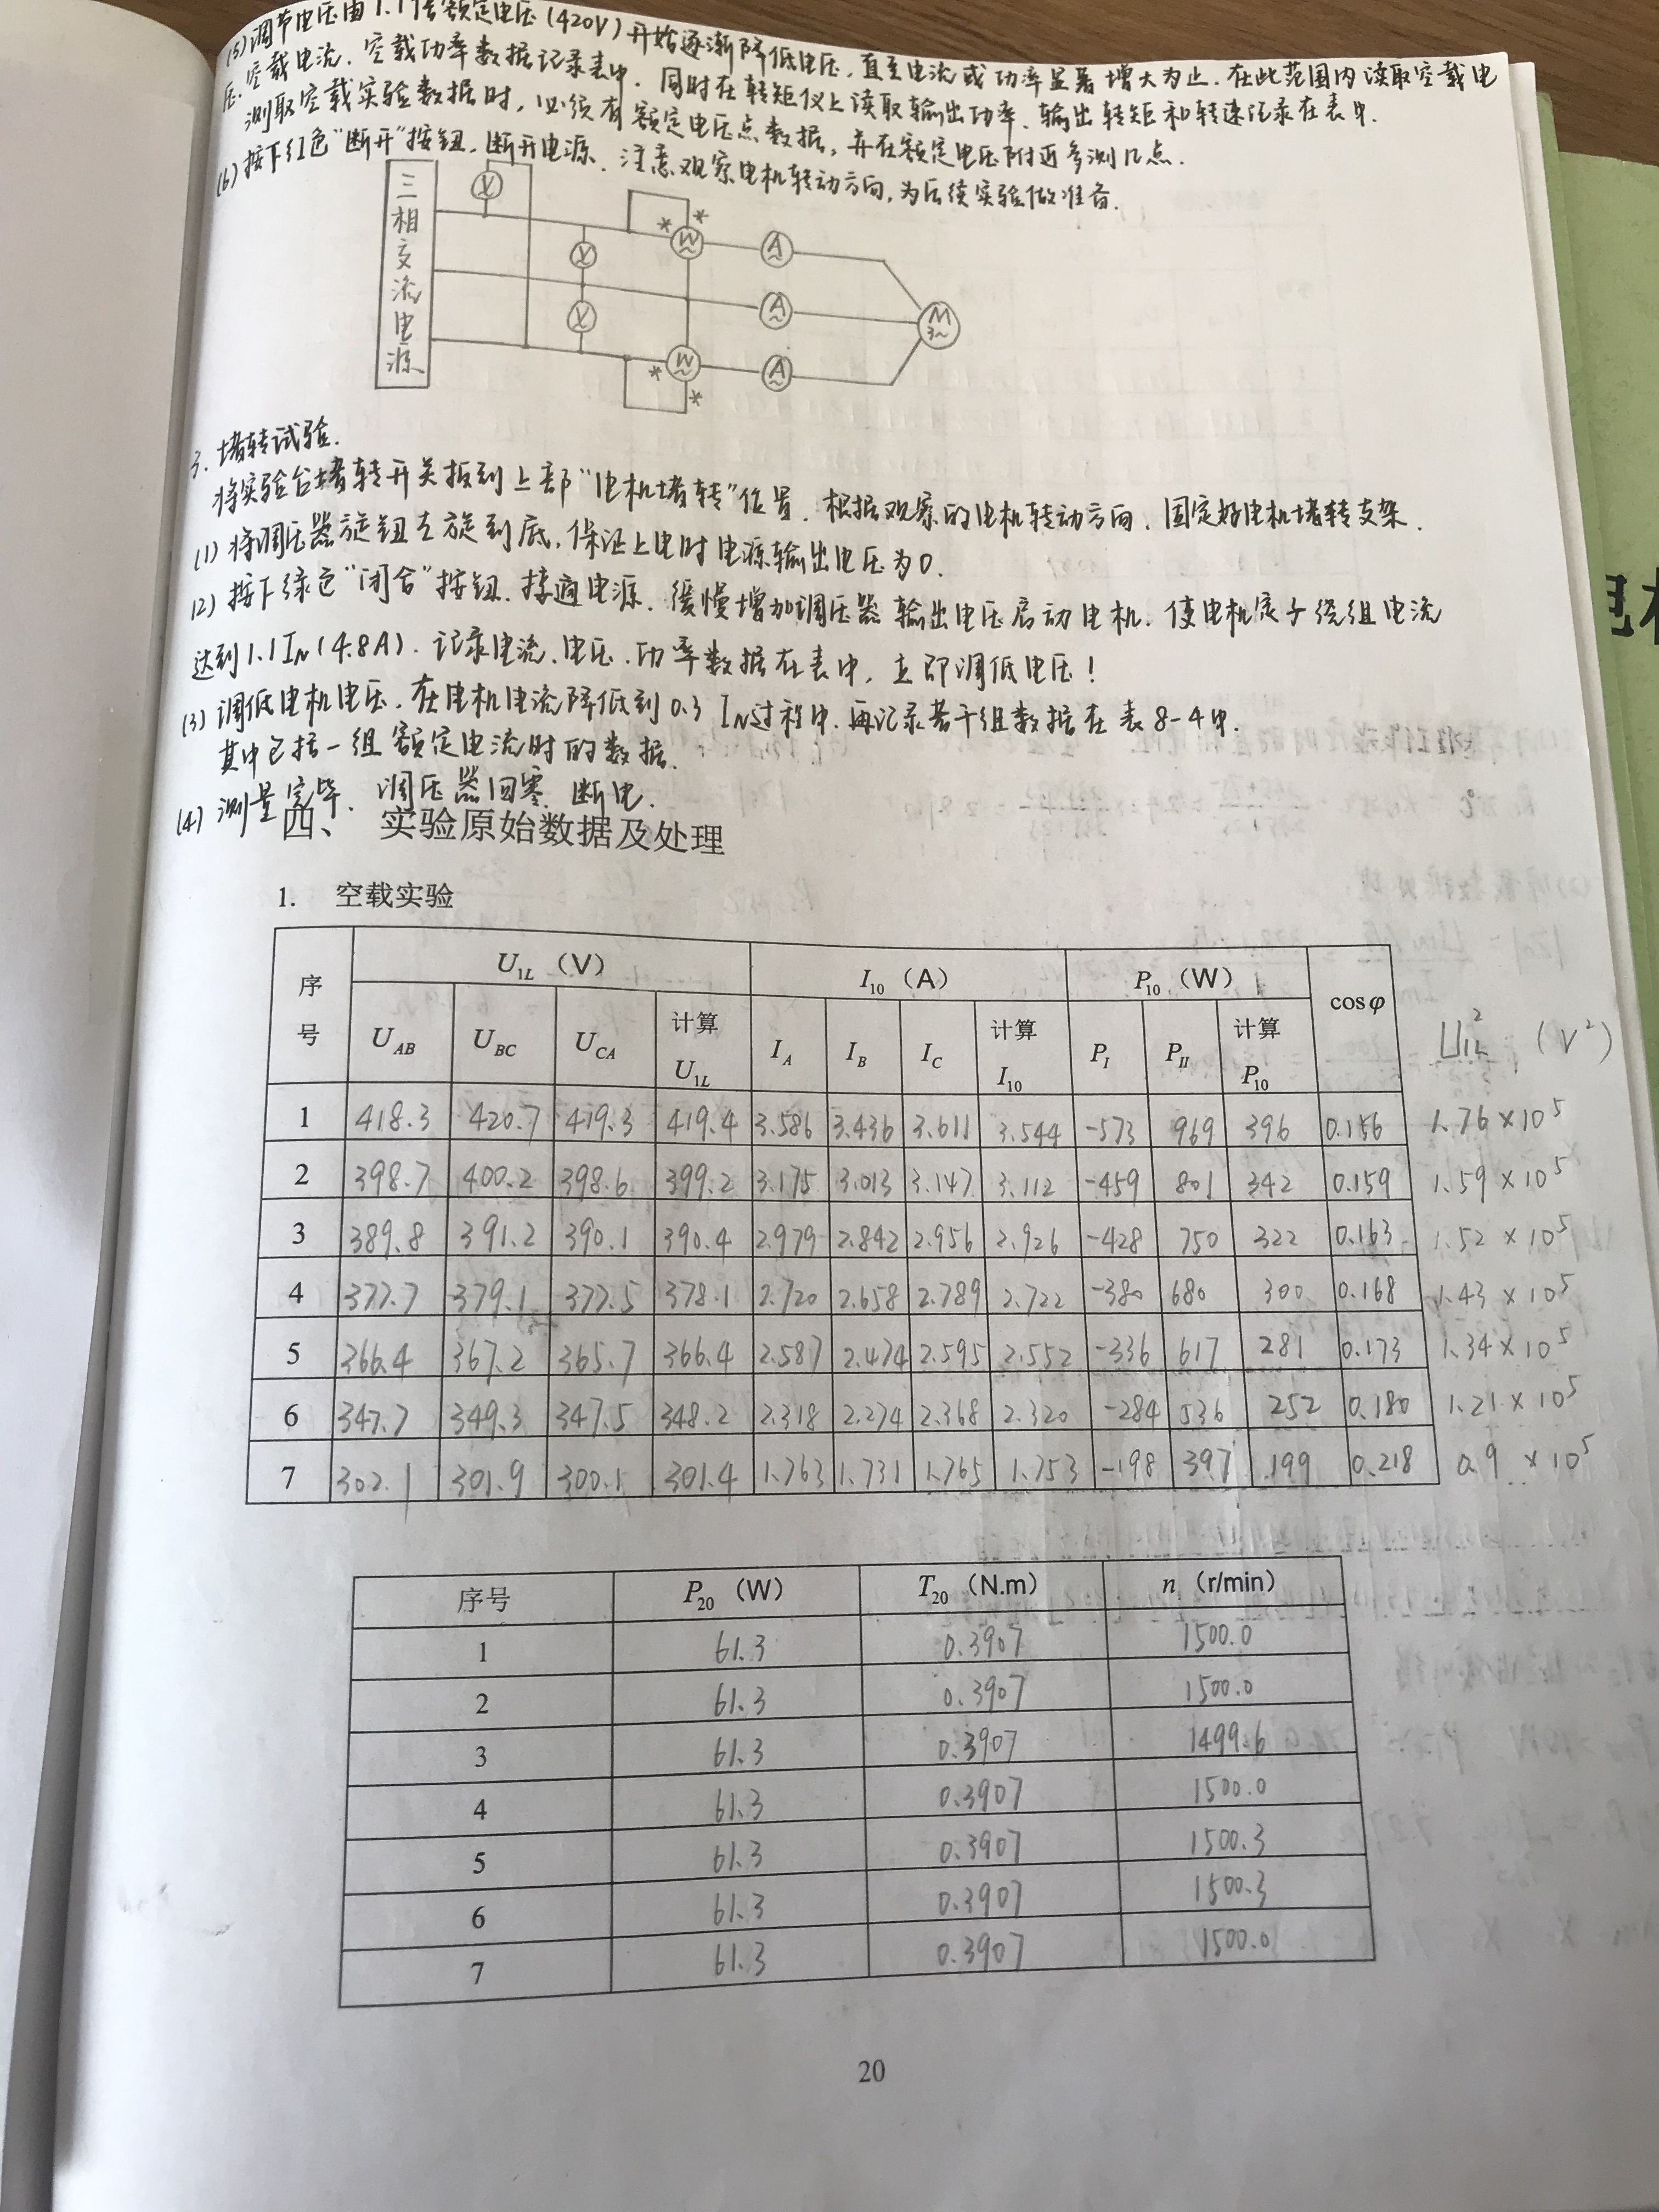 (5)调节电压由1.1倍额定电压(420V)开始逐渐降低电压,直至电流或功率显著增大为止.在此范围内读取空载电
压.空载电流.空载功率数据记录表中.同时在转矩仪上读取输出功率.输出转矩和转速记录在表中.
测取空载实验数据时,必须有额定电压点数据,并在额定电压附近多测几点.
(6)按下红色"断开"按钮,断开电源.注意观察电机转动方向,为后续实验做准备.
三相交流电源
V
V
V
* *
W
* *
W
A
A
A
M
3~
3.堵转试验.
将实验台堵转开关扳到上部"电机堵转"位置.根据观察的电机转动方向.固定好电机堵转支架.
(1)将调压器旋钮左旋到底,保证上电时电源输出电压为0.
(2)按下绿色"闭合"按钮.接通电源.缓慢增加调压器输出电压启动电机.使电机定子绕组电流
达到1.1IN(4.8A).记录电流.电压.功率数据在表中,立即调低电压!
(3)调低电机电压.在电机电流降低到0.3IN过程中.再记录若干组数据在表8-4中.
其中包括一组额定电流时的数据.
(4)测量完毕.调压器回零.断电.
四、 实验原始数据及处理
1. 空载实验
序号 U1L (V) I10 (A) P10 (W) cosφ U1L² (V²)
UAB UBC UCA 计算U1L IA IB IC 计算I10 PI PII 计算P10
1 418.3 420.7 419.3 419.4 3.586 3.436 3.611 3.544 -573 969 396 0.156 1.76×10⁵
2 398.7 400.2 398.6 399.2 3.175 3.013 3.147 3.112 -459 801 342 0.159 1.59×10⁵
3 389.8 391.2 390.1 390.4 2.979 2.842 2.956 2.926 -428 750 322 0.163 1.52×10⁵
4 377.7 379.1 377.5 378.1 2.720 2.658 2.789 2.722 -380 680 300 0.168 1.43×10⁵
5 366.4 367.2 365.7 366.4 2.587 2.474 2.595 2.552 -336 617 281 0.173 1.34×10⁵
6 347.7 349.3 347.5 348.2 2.318 2.274 2.368 2.320 -284 536 252 0.180 1.21×10⁵
7 302.1 301.9 300.1 301.4 1.763 1.731 1.765 1.753 -198 397 199 0.218 0.9×10⁵
序号 P20 (W) T20 (N.m) n (r/min)
1 61.3 0.3907 1500.0
2 61.3 0.3907 1500.0
3 61.3 0.3907 1499.6
4 61.3 0.3907 1500.0
5 61.3 0.3907 1500.3
6 61.3 0.3907 1500.3
7 61.3 0.3907 1500.0
20